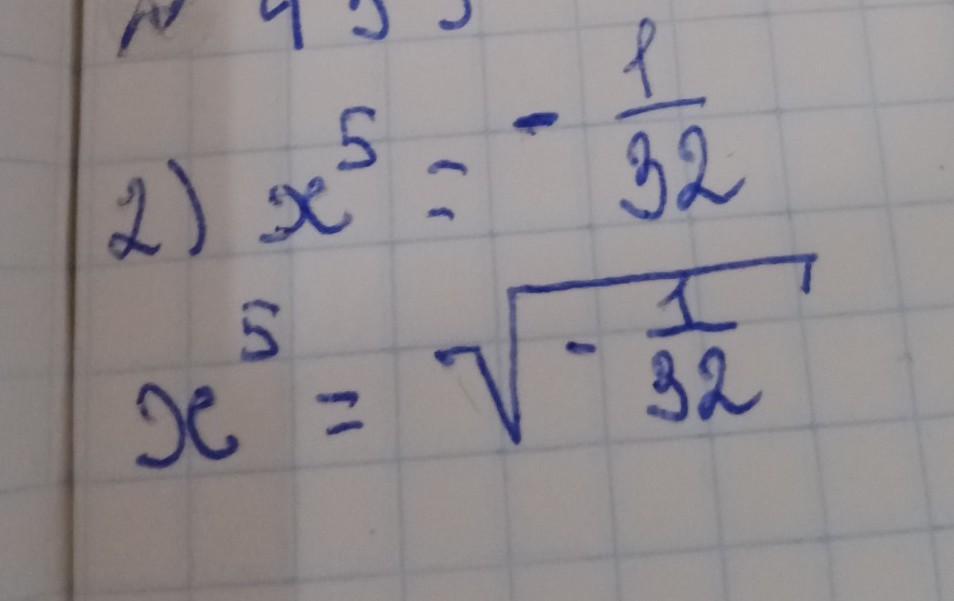 2) x⁵ = - 1/32
x⁵ = √(- 1/32)